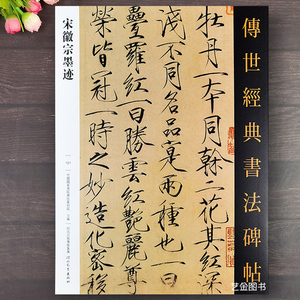 傳世經典書法碑帖
牡丹一本同幹二花其紅深
淺不同名品寔兩種也一曰
疊羅紅一曰勝雲紅艷麗尊
榮皆冠一時之妙造化密移
宋徽宗墨迹
艺金图书